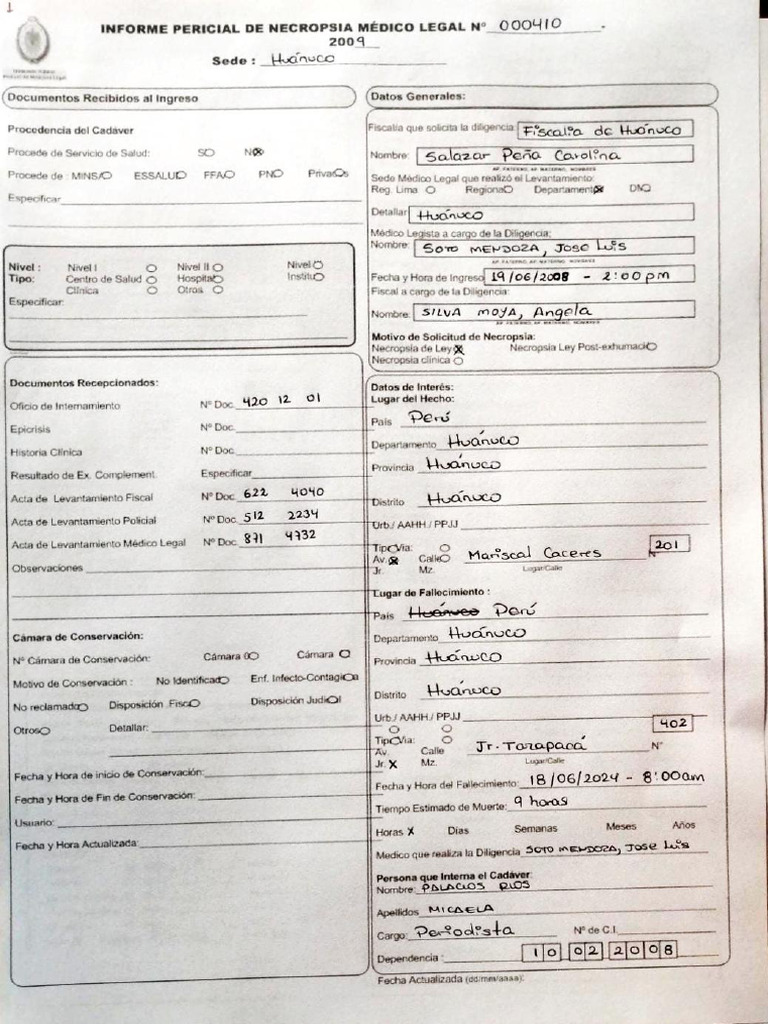 1
INFORME PERICIAL DE NECROPSIA MÉDICO LEGAL N° 000410
2009
Sede : Huánuco
Documentos Recibidos al Ingreso
Procedencia del Cadáver
Procede de Servicio de Salud: SO NO
Procede de : MINSA ESSALUD FFAO PNO Privados
Especificar
Nivel : Nivel I Nivel II Nivel
Tipo: Centro de Salud Hospital Instituto
Clínica Otros
Especificar:
Documentos Recepcionados:
Oficio de Internamiento N° Doc. 420 12 01
Epicrisis N° Doc.
Historia Clínica N° Doc.
Resultado de Ex. Complement. Especificar
Acta de Levantamiento Fiscal N° Doc. 622 4040
Acta de Levantamiento Policial N° Doc. 512 2234
Acta de Levantamiento Médico Legal N° Doc. 871 4732
Observaciones
Cámara de Conservación:
N° Cámara de Conservación: Cámara 0 Cámara
Motivo de Conservación : No Identificado Enf. Infecto-Contagiosa
No reclamado Disposición Fiscal Disposición Judicial
Otros Detallar:
Fecha y Hora de inicio de Conservación:
Fecha y Hora de Fin de Conservación:
Usuario:
Fecha y Hora Actualizada:
Datos Generales:
Fiscalia que solicita la diligencia: Fiscalia de Huánuco
Nombre: Salazar Peña Carolina
AP. PATERNO, AP. MATERNO, NOMBRES
Sede Médico Legal que realizó el Levantamiento:
Reg. Lima Regional Departamental
Detallar Huánuco
Médico Legista a cargo de la Diligencia:
Nombre: SOTO MENDOZA, JOSE LUIS
AP. PATERNO, AP. MATERNO, NOMBRES
Fecha y Hora de Ingreso 19/06/2008 - 2:00pm
Fiscal a cargo de la Diligencia:
Nombre: SILVA MOYA, Angela
AP. PATERNO, AP. MATERNO, NOMBRES
Motivo de Solicitud de Necropsia:
Necropsia de Ley X Necropsia Ley Post-exhumació
Necropsia clínica
Datos de Interés:
Lugar del Hecho:
País Perú
Departamento Huánuco
Provincia Huánuco
Distrito Huánuco
Urb./ AAHH / PPJJ
Tipo Vía: 201
Av. X Calle Mariscal Caceres N°
Jr. Mz. Lugar/Calle
Lugar de Fallecimiento :
País Huánuco Perú
Departamento Huánuco
Provincia Huánuco
Distrito Huánuco
Urb./ AAHH / PPJJ 402
Tipo Vía:
Av. Calle Jr. Tarapacá N°
Jr. X Mz. Lugar/Calle
Fecha y Hora del Fallecimiento: 18/06/2024 - 8:00am
Tiempo Estimado de Muerte: 9 horas
Horas X Días Semanas Meses Años
Medico que realiza la Diligencia SOTO MENDOZA, JOSE LUIS
Persona que Interna el Cadáver:
Nombre: PALACIOS RIOS
Apellidos MICAELA
Cargo: Periodista N° de C.I.
Dependencia : 10 02 2008
Fecha Actualizada (dd/mm/aaaa):